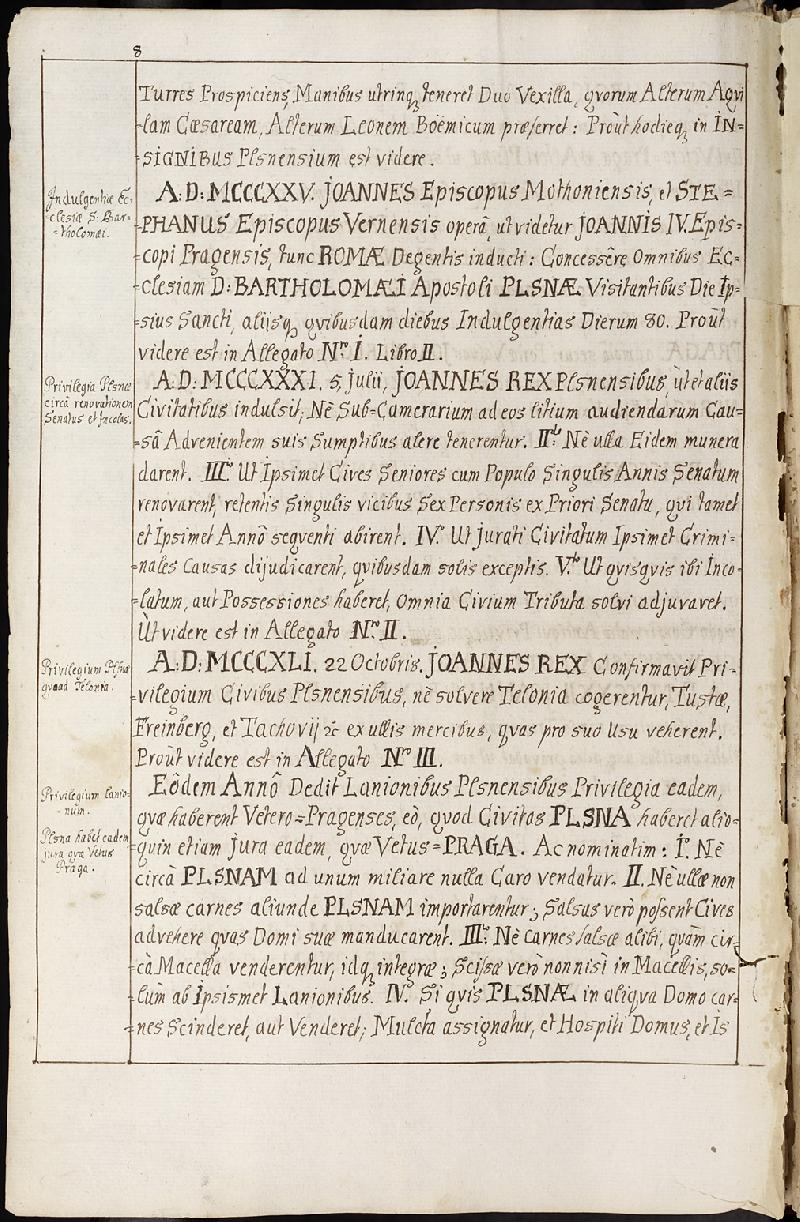 8
Turres Prospiciens, Manibus utrinq, teneret Duo Vexilla, qvorum Alterum Aqvi
lam Cæsaream, Alterum Leonem Boëmicum præferret: Proùt hodieq, in IN=
=SIGNIBUS Plsnensium est videre.
Indulgentiæ Ec=
=clesiæ S. Bar=
=tholomæi.
A: D: MCCCXXV. JOANNES Episcopus Mothoniensis, et STE=
=PHANUS Episcopus Vernensis operâ, ut videtur JOANNIS IV. Epis=
=copi Pragensis, tunc ROMÆ Degentis inducti: Concessêre Omnibus Ec=
=clesiam D: BARTHOLOMÆI Apostoli PLSNÆ Visitantibus Die Ip=
=sius Sancti, alijsq, qvibusdam diebus Indulgentias Dierum 80. Proùt
videre est in Allegato Nrô I. Libro II.
Privilegia Plsnæ
circà renovationem
Senatus et Incolas.
A: D: MCCCXXXI. 5 Julii, JOANNES REX Plsnensibus, ùt et aliis
Civitatibus indulsit; Nè Sub=Camerarium ad eos litium audiendarum Cau=
=sâ Advenientem suis Sumptibus alere tenerentur. IIdò Nè ulla Eidem munera
darent. IIIò Ut Ipsimet Cives Seniores cum Populo Singulis Annis Senatum
renovarent, retentis Singulis vicibus Sex Personis ex Priori Senatu, qvi tamet
et Ipsimet Annô seqventi abirent. IVò Ut Jurati Civitatum Ipsimet Crimi=
=nales Causas dijudicarent, qvibusdam solis exceptis. Vtò Ut qvisqvis ibi Inco=
=latum, aut Possessiones haberet, Omnia Civium Tributa solvi adjuvaret.
Ùt videre est in Allegato Nrô II.
Privilegium Plsnæ
qvoad Telonia.
A: D: MCCCXLI. 22 Octobris. JOANNES REX Confirmavit Pri=
=vilegium Civibus Plsnensibus, nè solvere Telonia cogerentur, Tustæ,
Freinberg, et Tachovij &c ex ullis mercibus, qvas pro suo Usu veherent.
Proùt videre est in Allegato Nrô III.
Privilegium Lanio=
=num.
Eôdem Annô Dedit Lanionibus Plsnensibus Privilegia eadem,
Plsna habet eadem
jura qvæ Vetus
Praga.
qvæ haberent Vetero=Pragenses, eò, qvod Civitas PLSNA haberet alio=
=qvin etiam Jura eadem, qvæ Vetus=PRAGA. Ac nominatim: Iò Nè
circà PLSNAM ad unum miliare nulla Caro vendatur. II. Nè ullæ non
salsæ carnes aliunde PLSNAM importarentur; Salsas verò possent Cives
advehere qvas Domi suæ manducarent. IIIò Nè Carnes salsæ alibi, qvàm cir=
=cà Macella venderentur, idq, integræ; Scissæ verò non nisi in Macellis, so=
=lùm ab Ipsismet Lanionibus. IV. Si qvis PLSNÆ in aliqva Domo car=
=nes Scinderet, aut Venderet; Mulcta assignatur, et Hospiti Domus, et Is